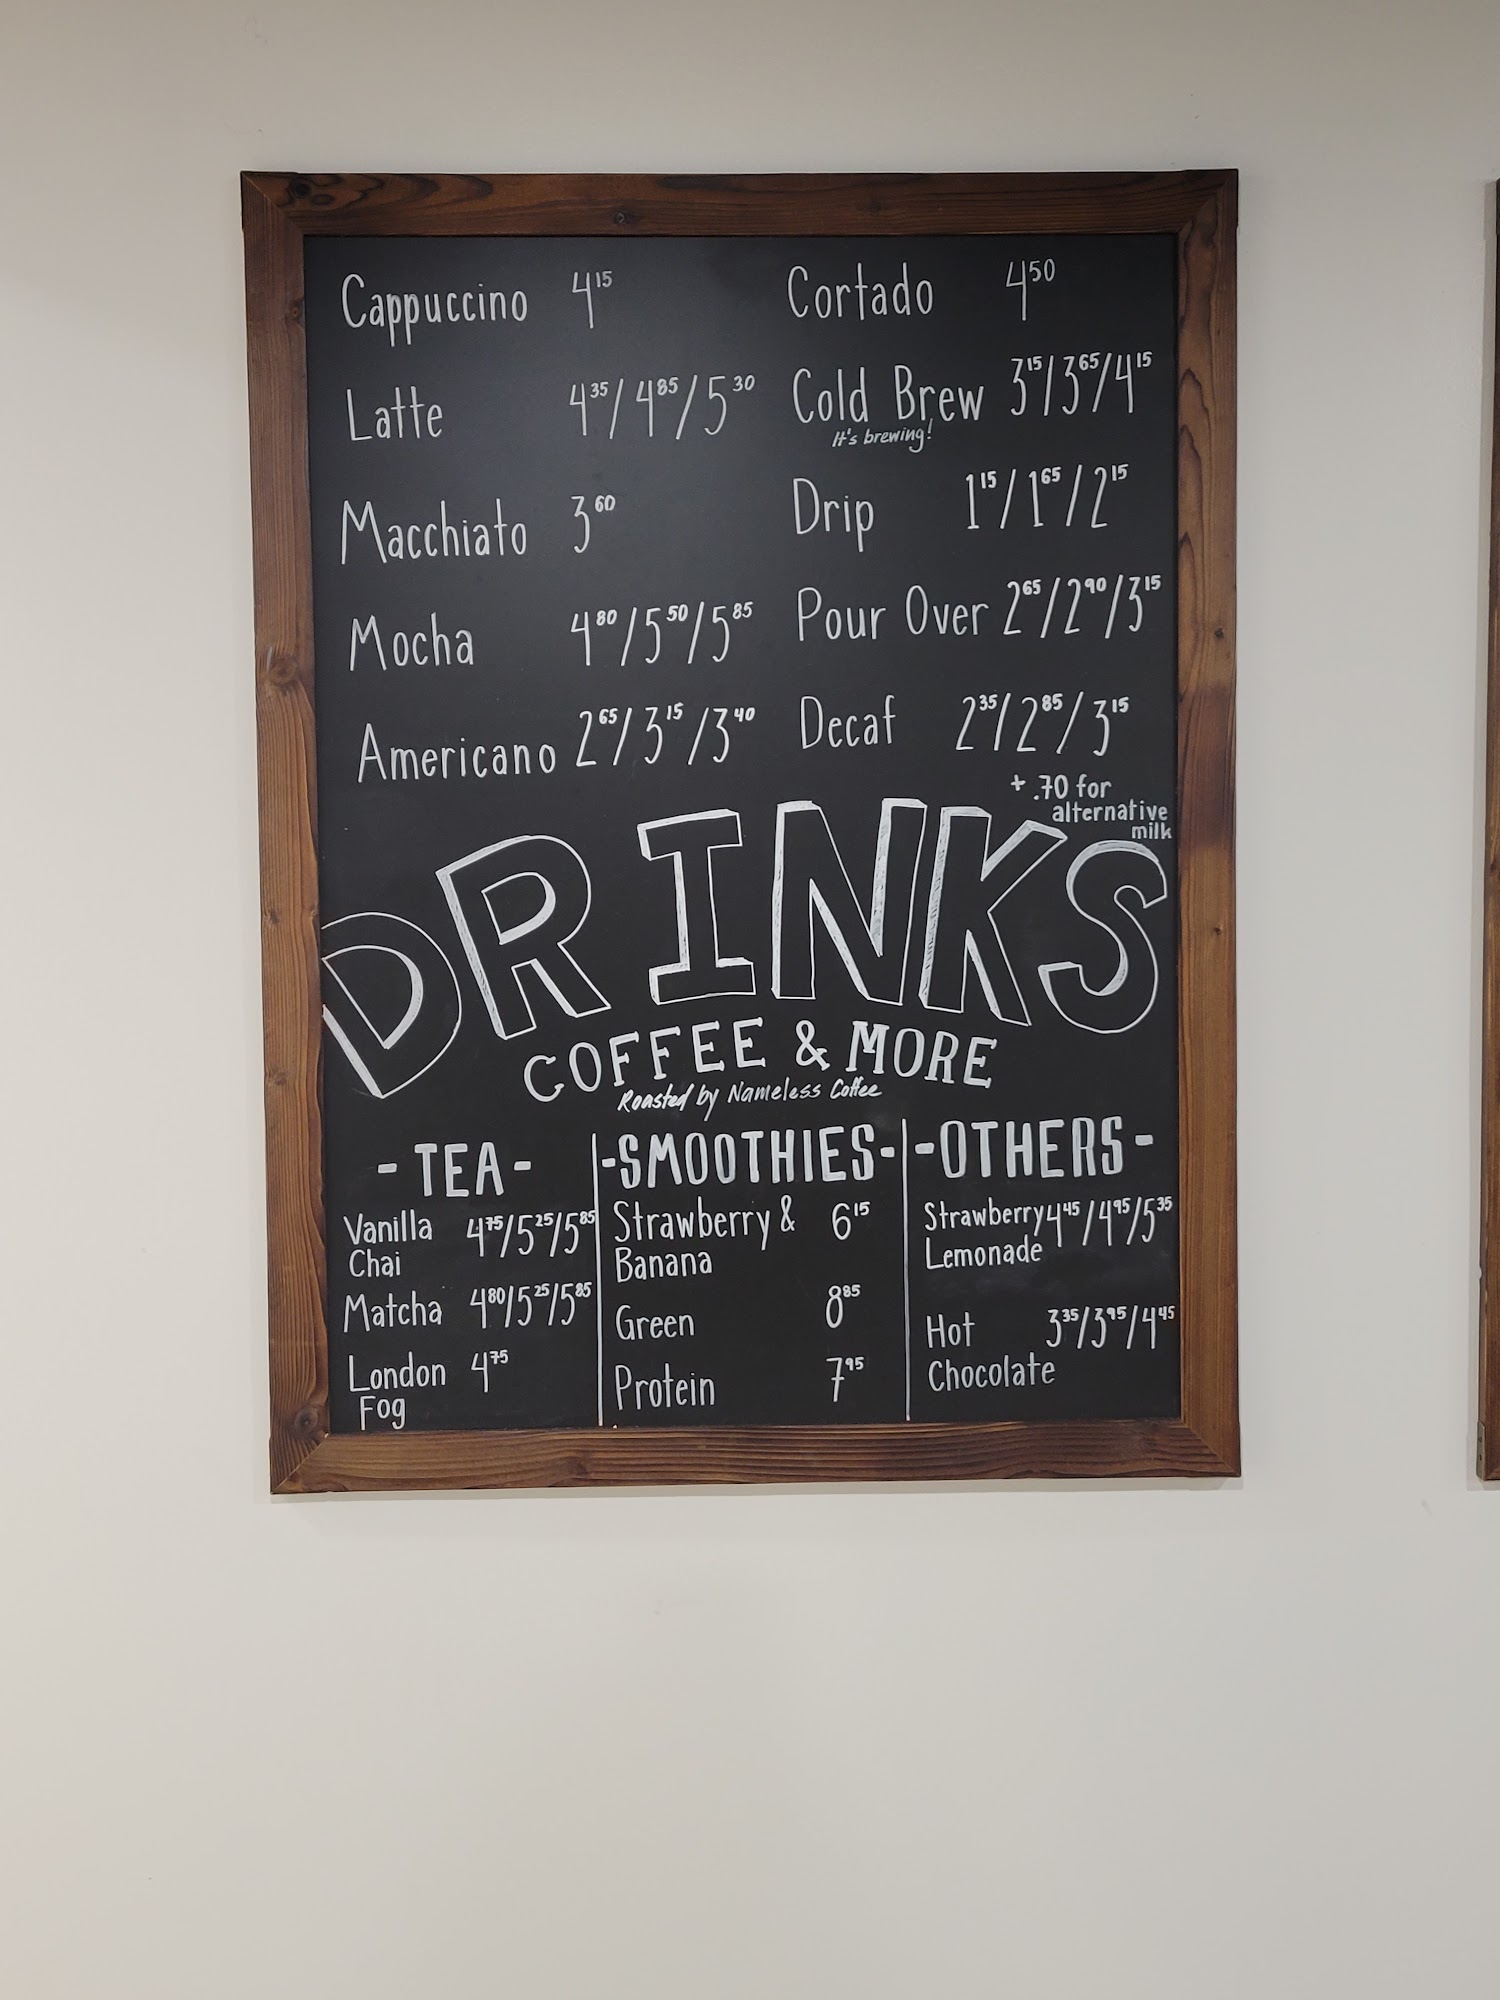 Cappuccino 4.15
Latte 4.35/4.85/5.30
Macchiato 3.60
Mocha 4.80/5.50/5.85
Americano 2.65/3.15/3.40
Cortado 4.50
Cold Brew 3.15/3.65/4.15
It's brewing!
Drip 1.15/1.65/2.15
Pour Over 2.65/2.90/3.15
Decaf 2.35/2.85/3.15
+ .70 for
alternative
milk
DRINKS
COFFEE & MORE
Roasted by Nameless Coffee
-TEA-
Vanilla 4.75/5.25/5.85
Chai
Matcha 4.80/5.25/5.85
London 4.75
Fog
-SMOOTHIES-
Strawberry & 6.15
Banana
Green 8.85
Protein 7.95
-OTHERS-
Strawberry 4.45/4.95/5.35
Lemonade
Hot 3.35/3.95/4.45
Chocolate